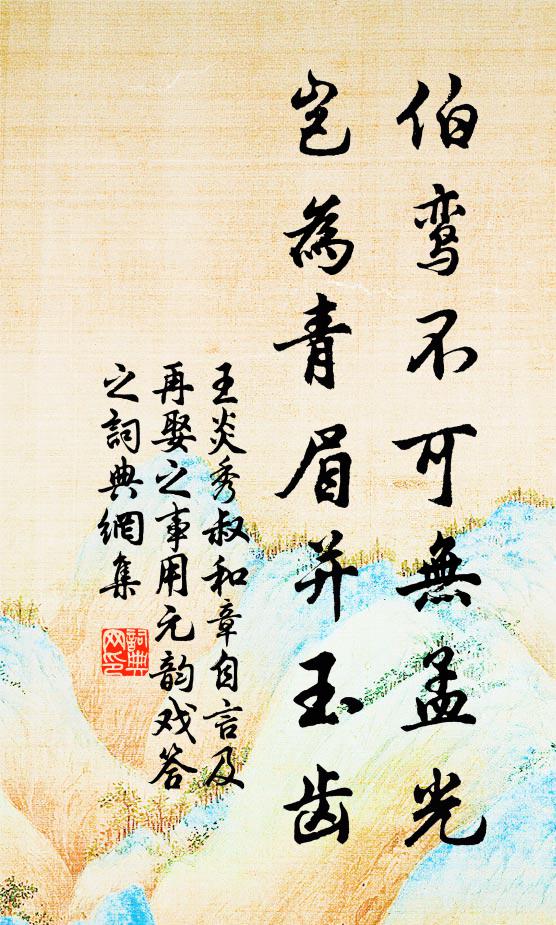 伯鸾不可無孟光
岂為青眉并玉齿
王炎秀叔和章自言及
再娶之事用元韵戏答
之詞典網集
詞典網印